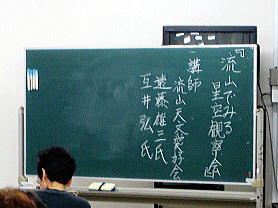 『流山でみる
星空観察会』
講師
流山天文愛好会
遠藤雄三氏
互井弘氏